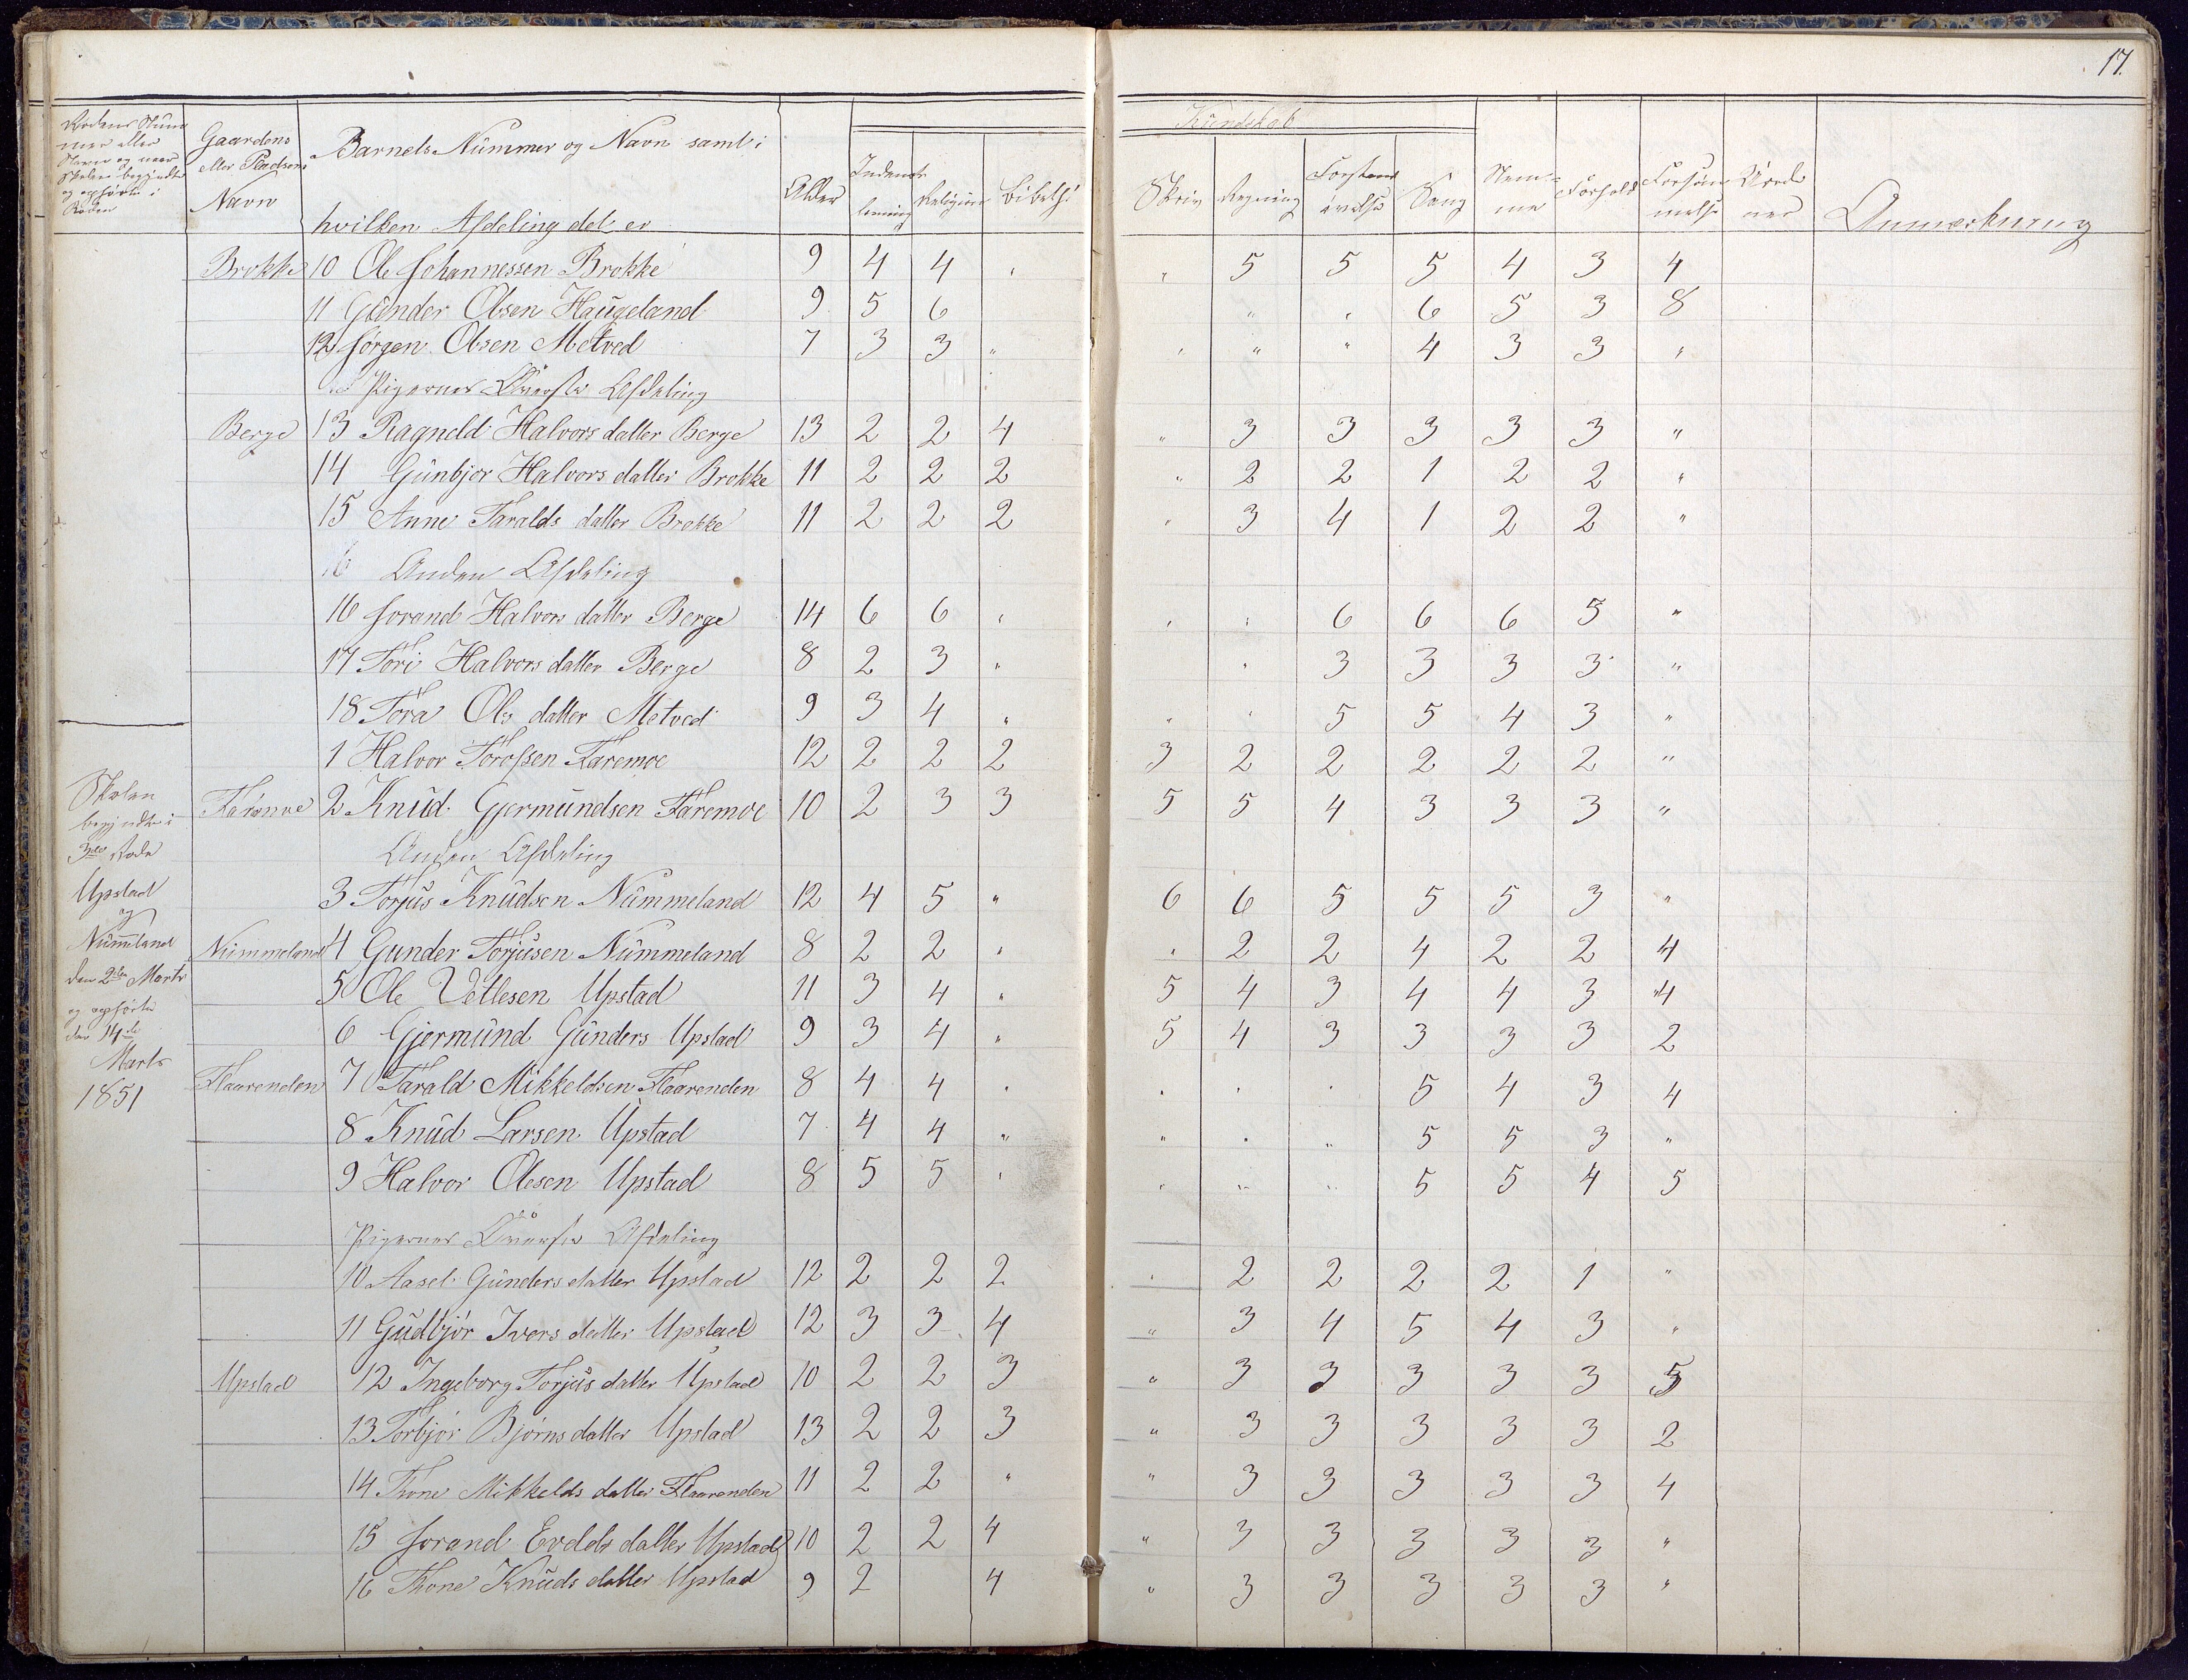 17.
Kundskab
Rodens Num
mer eller
Navn og naar
Skolen begyndte
og ophørte i
Roden
Gaardens
eller Pladsens
Navn
Barnets Nummer og Navn samt i
hvilken Afdeling det er
Alder
Indenad
læsning
Religion
Bibelh:
Skriv
Regning
Forstands
øvelse
Sang
Nem-
me
Forhold
Forsøm
melse
Anmærkning
Brokke 10 Ole Johannessen Brokke 9 4 4 " " 5 5 5 4 3 4
11 Gunder Olsen Haugeland 9 5 6 " " 6 5 3 8
12 Jørgen Olsen Metved 7 3 3 " " " " 4 3 3 "
Pigernes Øverste Afdeling
Berge 13 Ragneld Halvors datter Berge 13 2 2 4 " 3 3 3 3 3 "
14 Gunbjor Halvors datter Brokke 11 2 2 2 " 2 2 1 2 2 "
15 Anne Taralds datter Brokke 11 2 2 2 " 3 4 1 2 2 "
16 Anden Afdeling
16 Jorand Halvors datter Berge 14 6 6 " " " 6 6 6 5 "
17 Tori Halvors datter Berge 8 2 3 " " 3 3 3 3 "
18 Tora Ols datter Metved 9 3 4 " " " 5 5 4 3 "
1 Halvor Toroßen Faremoe 12 2 2 2 3 2 2 2 2 2 "
Faremoe 2 Knud Gjermundsen Faremoe 10 2 3 3 5 5 4 3 3 3 "
Anden Afdeling
3 Torjus Knudsen Nummeland 12 4 5 " 6 6 5 5 5 3 "
Nummeland 4 Gunder Torjusen Nummeland 8 2 2 " " 2 2 4 2 2 4
5 Ole Vetlesen Upstad 11 3 4 " 5 4 3 4 4 3 4
6 Gjermund Gunders Upstad 9 3 4 " 5 4 3 3 3 3 2
Flaarenden 7 Tarald Mikkeldsen Flaarenden 8 4 4 " " " " 5 4 3 4
8 Knud Larsen Upstad 7 4 4 " " " " 5 5 3 "
9 Halvor Olesen Upstad 8 5 5 " " " " 5 5 4 5
Pigernes Øverste Afdeling
10 Aasel Gunders datter Upstad 12 2 2 2 " 2 2 2 2 1 "
11 Gudbjør Ivers datter Upstad 12 3 3 4 " 3 4 5 4 3 "
Upstad 12 Ingeborg Torjus datter Upstad 10 2 2 3 " 3 3 3 3 3 5
13 Torbjør Bjørns datter Upstad 13 2 2 3 " 3 3 3 3 3 2
14 Thone Mikkelds datter Flaarenden 11 2 2 " " 3 3 3 3 3 4
15 Jorand Evelds datter Upstad 10 2 2 4 " 3 3 3 3 3 "
16 Thone Knuds datter Upstad 9 2 4 " 3 3 3 3 3 "
Skolen
begyndte i
3die Rode
Upstad
og
Nummeland
den 2den Marts
og ophørte
den 14de
Marts
1851